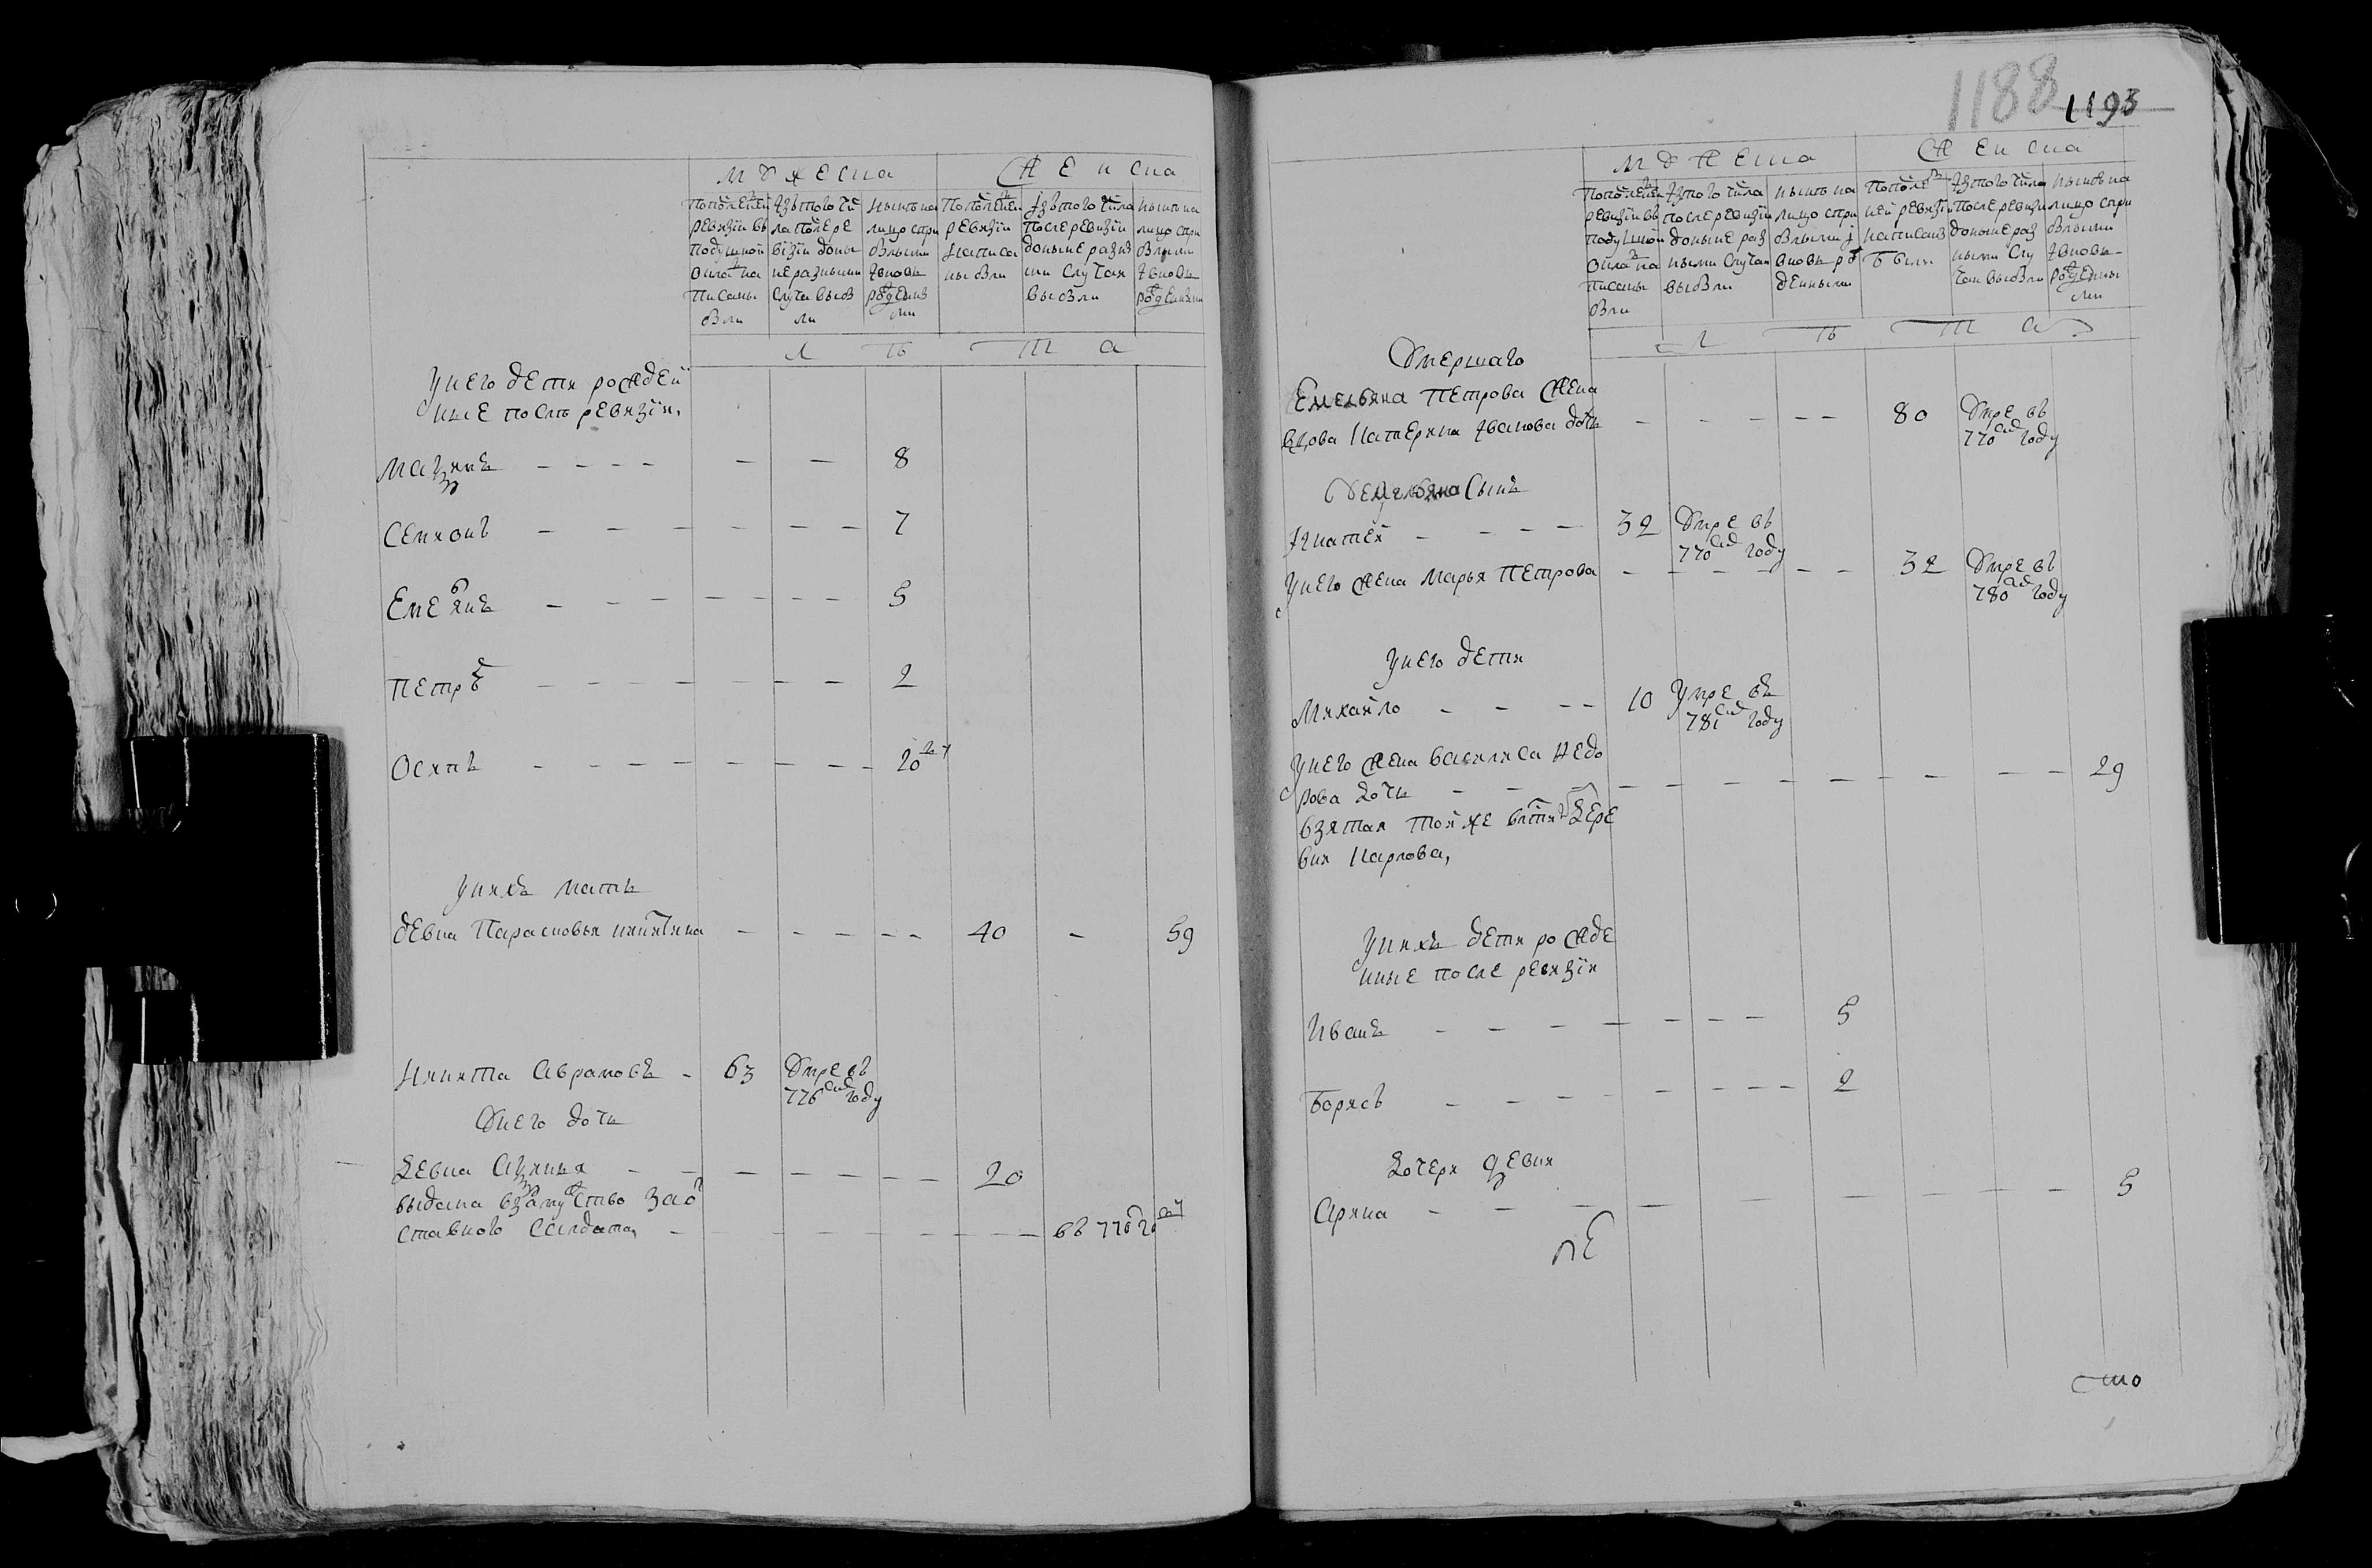 мужеска
женска
По последней ревизіи въ подушной окладъ написаны были
Изъ того числа после ревизіи доныне разными случаи выбыли
Ныне на лицо съ прибылыми и вновь рожденными
По последней ревизіи написаны были
Изъ того числа после ревизіи доныне разными случаи выбыли
Ныне на лицо съ прибылыми и вновь рожденными
л ѣ т а
У него дети рожден
ные после ревизіи,
8
Семионъ - - - - - - 7
Емельянъ - - - - - - 5
Петръ - - - - - - 2
Осипъ - - - - - - -
У нихъ мать
девка Парасковья - - - - - 40 - 59
Никита Аврамовъ - 63 Умре въ
776 году
У него дочь
Девка - - - - - - 20
выдана взамужство за от
ставного салдата, - - - - - - - въ 770
1188
1193
мужеска
женска
По последней ревизіи въ подушной окладъ написаны были
Изъ того числа после ревизіи доныне разными случаи выбыли
Ныне на лицо съ прибылыми и вновь рожденными
По последней ревизіи написаны были
Изъ того числа после ревизіи доныне разными случаи выбыли
Ныне на лицо съ прибылыми и вновь рожденными
л ѣ т а
Умершаго
Емельяна Петрова жена
вдова Катерина Иванова дочь - - - - - 80 Умре въ
770 году
У Емельяна сынъ
Игнатей - - - - 32 Умре въ
770 году
У него жена Марья Петрова - - - - - 32 Умре въ
780 году
У него дети
Михайло - - - - 10 Умре въ
781 году
У него жена Василиса Федо
рова дочь - - - - - - - - - - 29
взятая той же вотчины дере
вни Карпова,
У нихъ дети рожде
нные после ревизіи
Иванъ - - - - - - - 5
Борисъ - - - - - - - 2
Дочери девки
Арина - - - - - - - - - 5